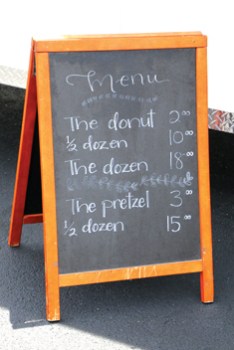 Menu
The donut 2.00
1/2 dozen 10.00
The dozen 18.00
The pretzel 3.00
1/2 dozen 15.00